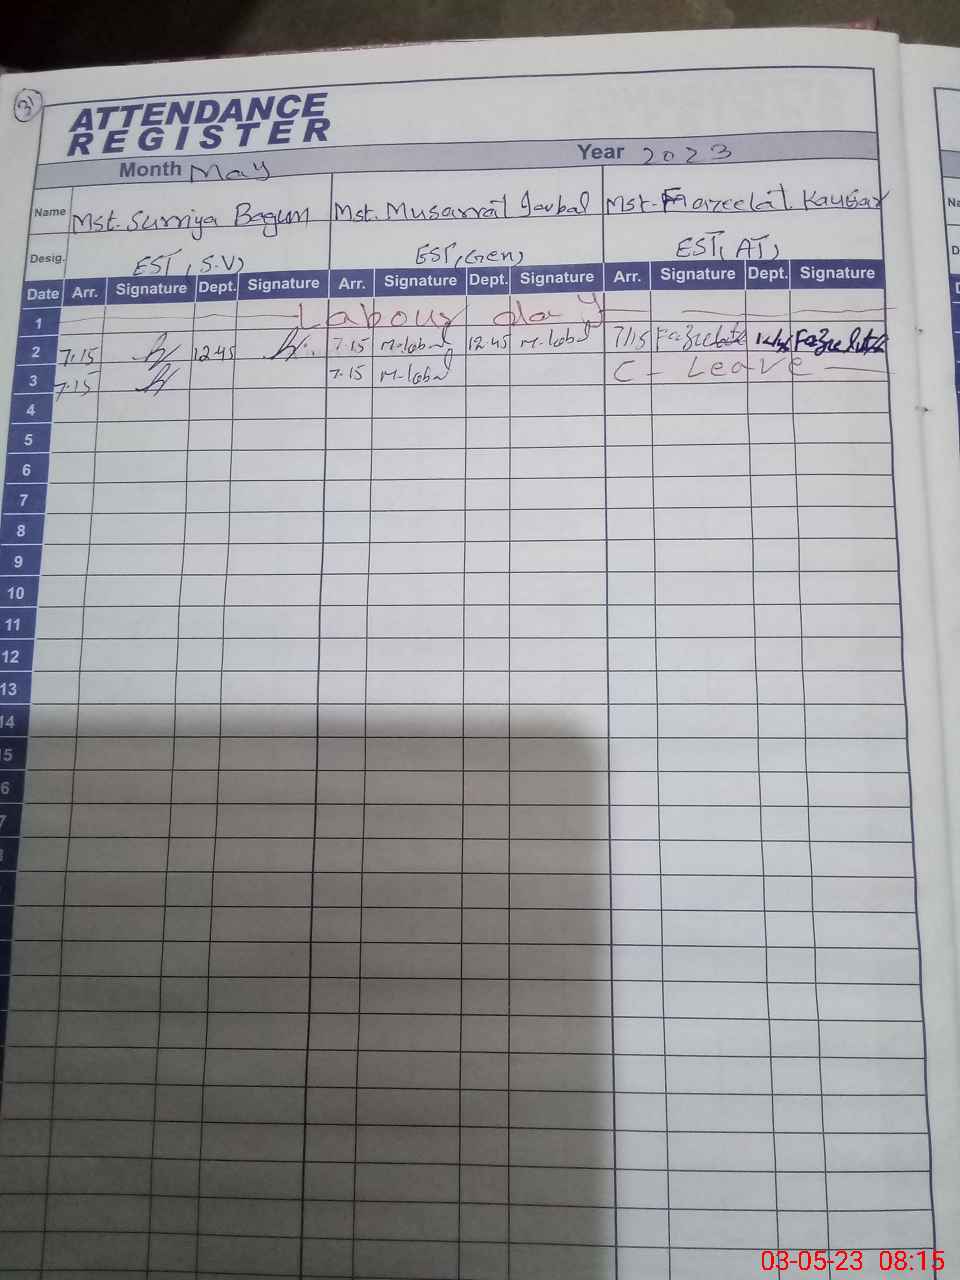 3
ATTENDANCE
REGISTER
Month May Year 2023
Name Mst. Surriya Bagum Mst. Musarrat Mst. Kausar
Desig. EST, (S.V) EST, (Gen) EST, (AT)
Date Arr. Signature Dept. Signature Arr. Signature Dept. Signature Arr. Signature Dept. Signature
1 Labour day
2 7.15 12.45 7.15 M-Iqbal 12.45 M-Iqbal 7/15
3 7.15 7.15 M-Iqbal C - Leave
4
5
6
7
8
9
10
11
12
13
14
5
6
7
03-05-23 08:15